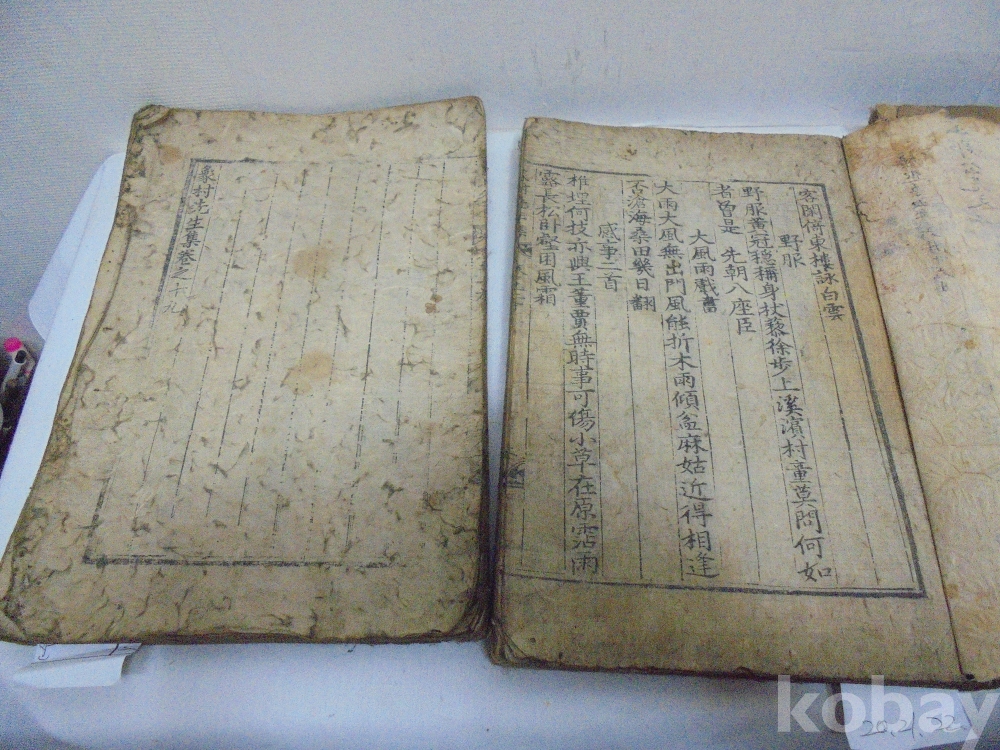 象村先生集卷之十九
客閣倚東樓詠白雲
野服
野服黃冠穩稱身扶藜徐步上溪濱村童莫問何如
者曾是 先朝八座臣
大風雨戱書
大雨大風無出門風能折木雨傾盆麻姑近得相逢
否滄海桑田幾日翻
感事二首
椎埋何技亦輿王董賈無時事可傷小草在原霑雨
露長松臥壑困風霜
kobay